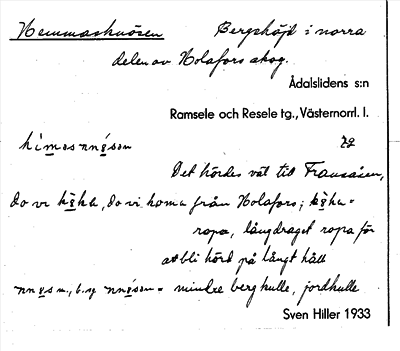 Hemmasknösen Bergshöjd i norra
delen av Holafors skog.
Ådalslidens s:n
Ramsele och Resele tg., Västernorrl. l.
Det hördes väl till Fransåsen,
do vi kom från Holafors;
ropa, långdraget ropa för
att bli hörd på långt håll
mindre berghulle, jordkulle
Sven Hiller 1933